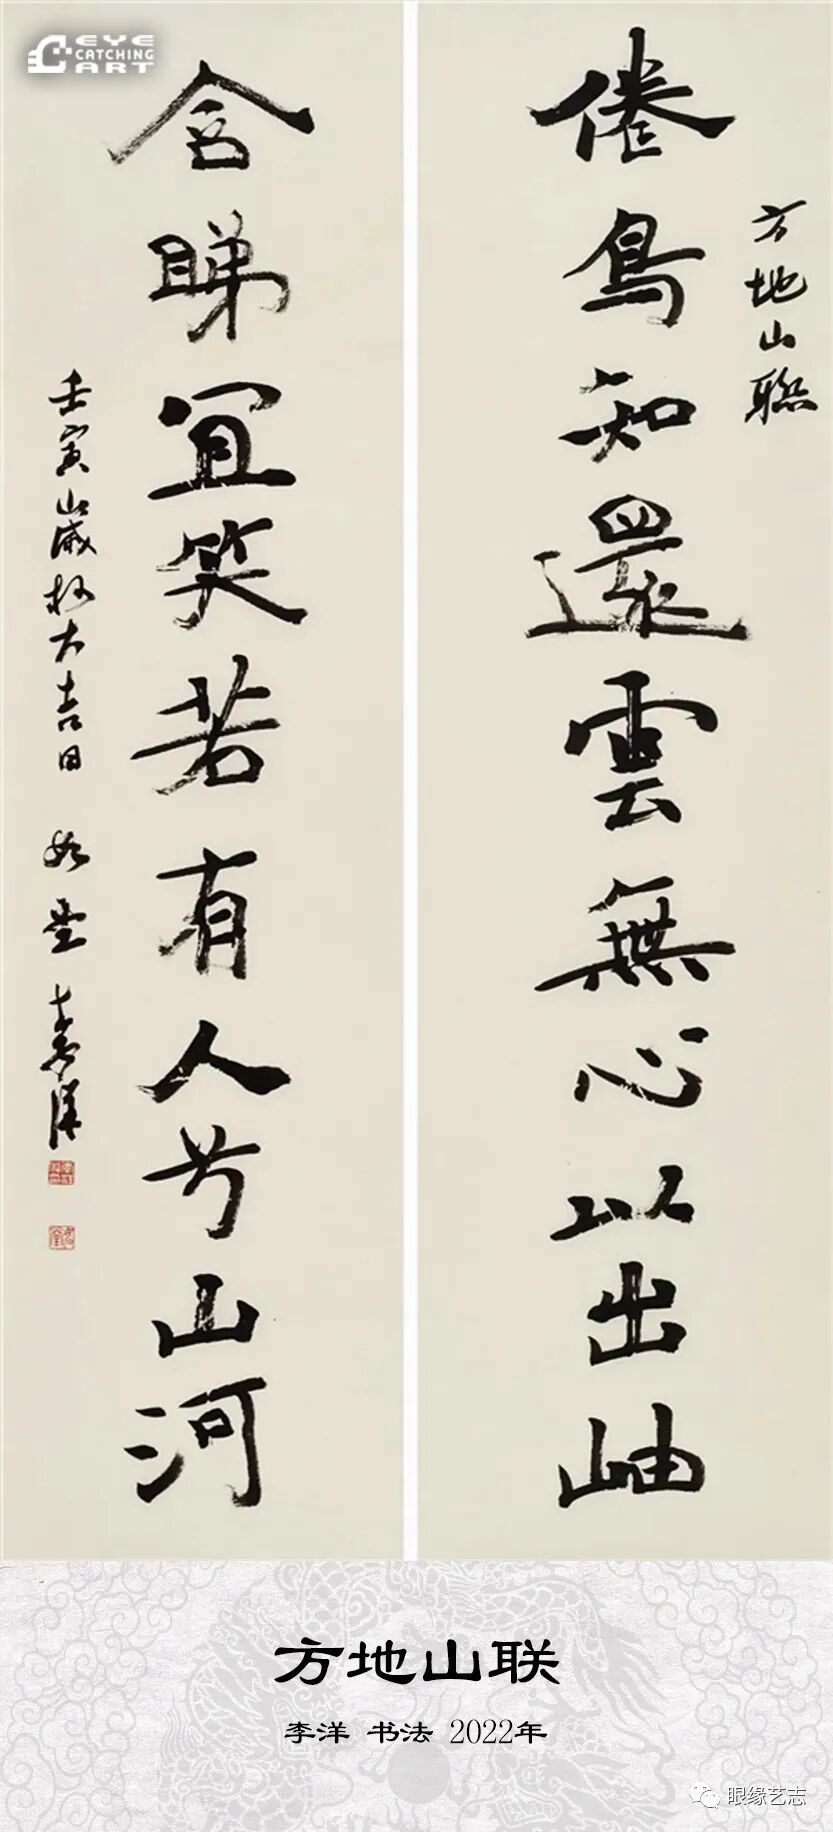 EYE
CATCHING
ART
方地山聯
倦鳥知還雲無心以出岫
含睇宜笑若有人兮山河
壬寅山歲杪大吉日 如堂 李洋
方地山联
李洋 书法 2022年
眼缘艺志